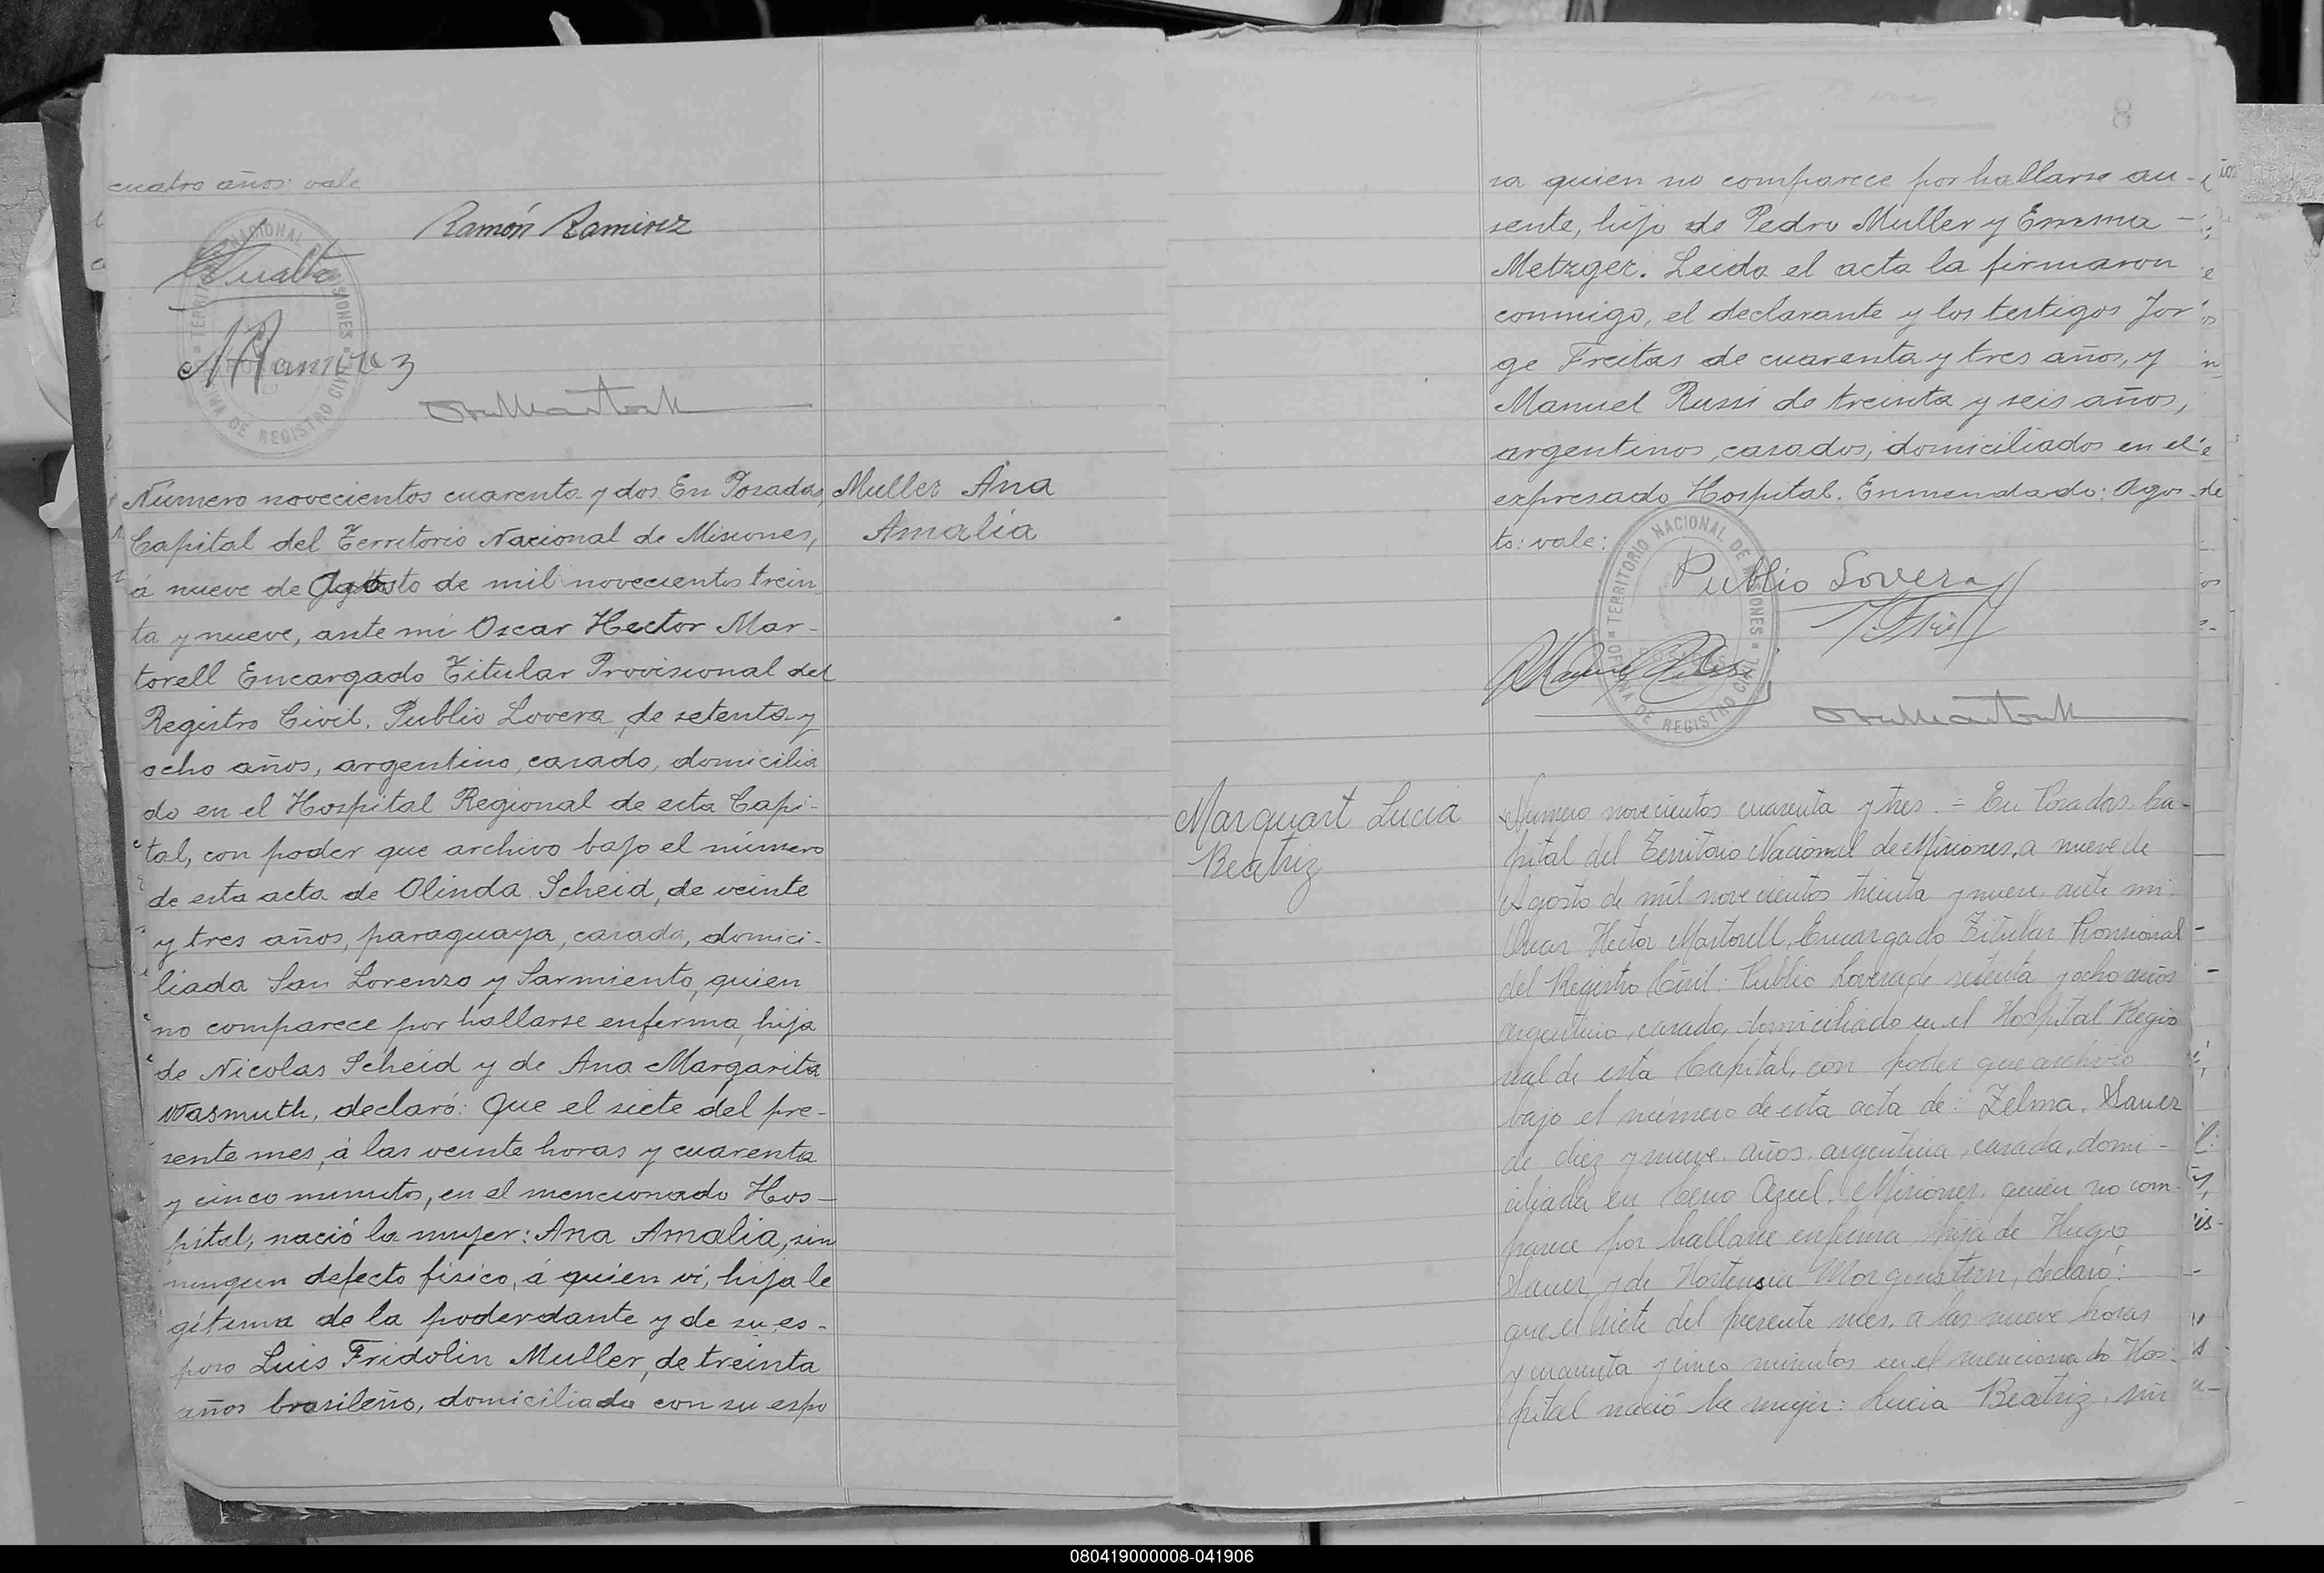 cuatro años: vale
Ramón Ramirez
TERRITORIO NACIONAL DE MISIONES
OFICINA DE REGISTRO CIVIL
NRamirez
Número novecientos cuarenta y dos. En Posadas,
Capital del Territorio Nacional de Misiones,
á nueve de Agosto de mil novecientos trein
ta y nueve, ante mi Oscar Hector Mar-
torell Encargado Titular Provisional del
Registro Civil. Publio Lovera, de setenta y
ocho años, argentino, casado, domicilia
do en el Hospital Regional de esta Capi-
tal, con poder que archivo bajo el número
de esta acta de Olinda Scheid, de veinte
y tres años, paraguaya, casada, domici-
liada San Lorenzo y Sarmiento, quien
no comparece por hallarse enferma, hija
de Nicolas Scheid y de Ana Margarita
Wasmuth, declaró: Que el siete del pre-
sente mes, á las veinte horas y cuarenta
y cinco minutos, en el mencionado Hos-
pital, nació la mujer: Ana Amalia, sin
ningun defecto físico, á quien vi, hija le
gítima de la poderdante y de su es-
poso Luis Fridolin Muller, de treinta
años brasileño, domiciliado con su espo
Muller Ana
Amalia
8
sa quien no comparece por hallarse au-
sente, hijo de Pedro Muller y Emma
Metzger. Leida el acta la firmaron
conmigo, el declarante y los testigos Jor
ge Freitas de cuarenta y tres años, y
Manuel Russi de treinta y seis años,
argentinos, casados, domiciliados en el
expresado Hospital. Enmendado: Agos-
to: vale:
Publio Lovera
TERRITORIO NACIONAL DE MISIONES
OFICINA DE REGISTRO CIVIL
Marquart Lucia
Beatriz
Numero novecientos cuarenta y tres. = En Posadas Ca-
pital del Territorio Nacional de Misiones, a nueve de
Agosto de mil novecientos treinta y nueve, ante mi
Oscar Hector Martorell, Encargado Titular Provisional
del Registro Civil: Publio Lovera, de setenta y ocho años
argentino, casado, domiciliado en el Hospital Regio
nal de esta Capital, con poder que archivo
bajo el número de esta acta de: Zelma Sauer
de diez y nueve años, argentina, casada, domi-
ciliada en Cerro Azul, Misiones, quien no com-
parece por hallarse enferma, hija de Hugo
Sauer y de Hortensia Morguestern, declaró:
que el siete del presente mes, a las nueve horas
y cuarenta y cinco minutos en el mencionado Hos-
pital nació la mujer: Lucia Beatriz, sin
080419000008-041906